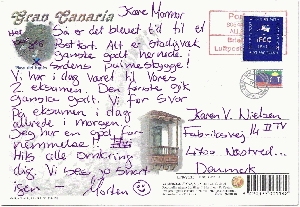 Gran Canaria
Kære Mormor
Så er det blevet tid til et
Postkort. Alt er stadigvæk
Ganske godt hernede i
Sydens Palmehygge!
Vi har i dag været til vores
2 eksamen. Den første gik
Ganske godt. Vi får svar
På eksamen i dag
allerede i morgen.
Jeg har en god for-
nemmelse!! Hej
Hils alle omkring
dig. Vi ses jo snart
igen — Morten
Karen V. Nielsen
Fabriksvej 14 II TV
Næstved
Danmark